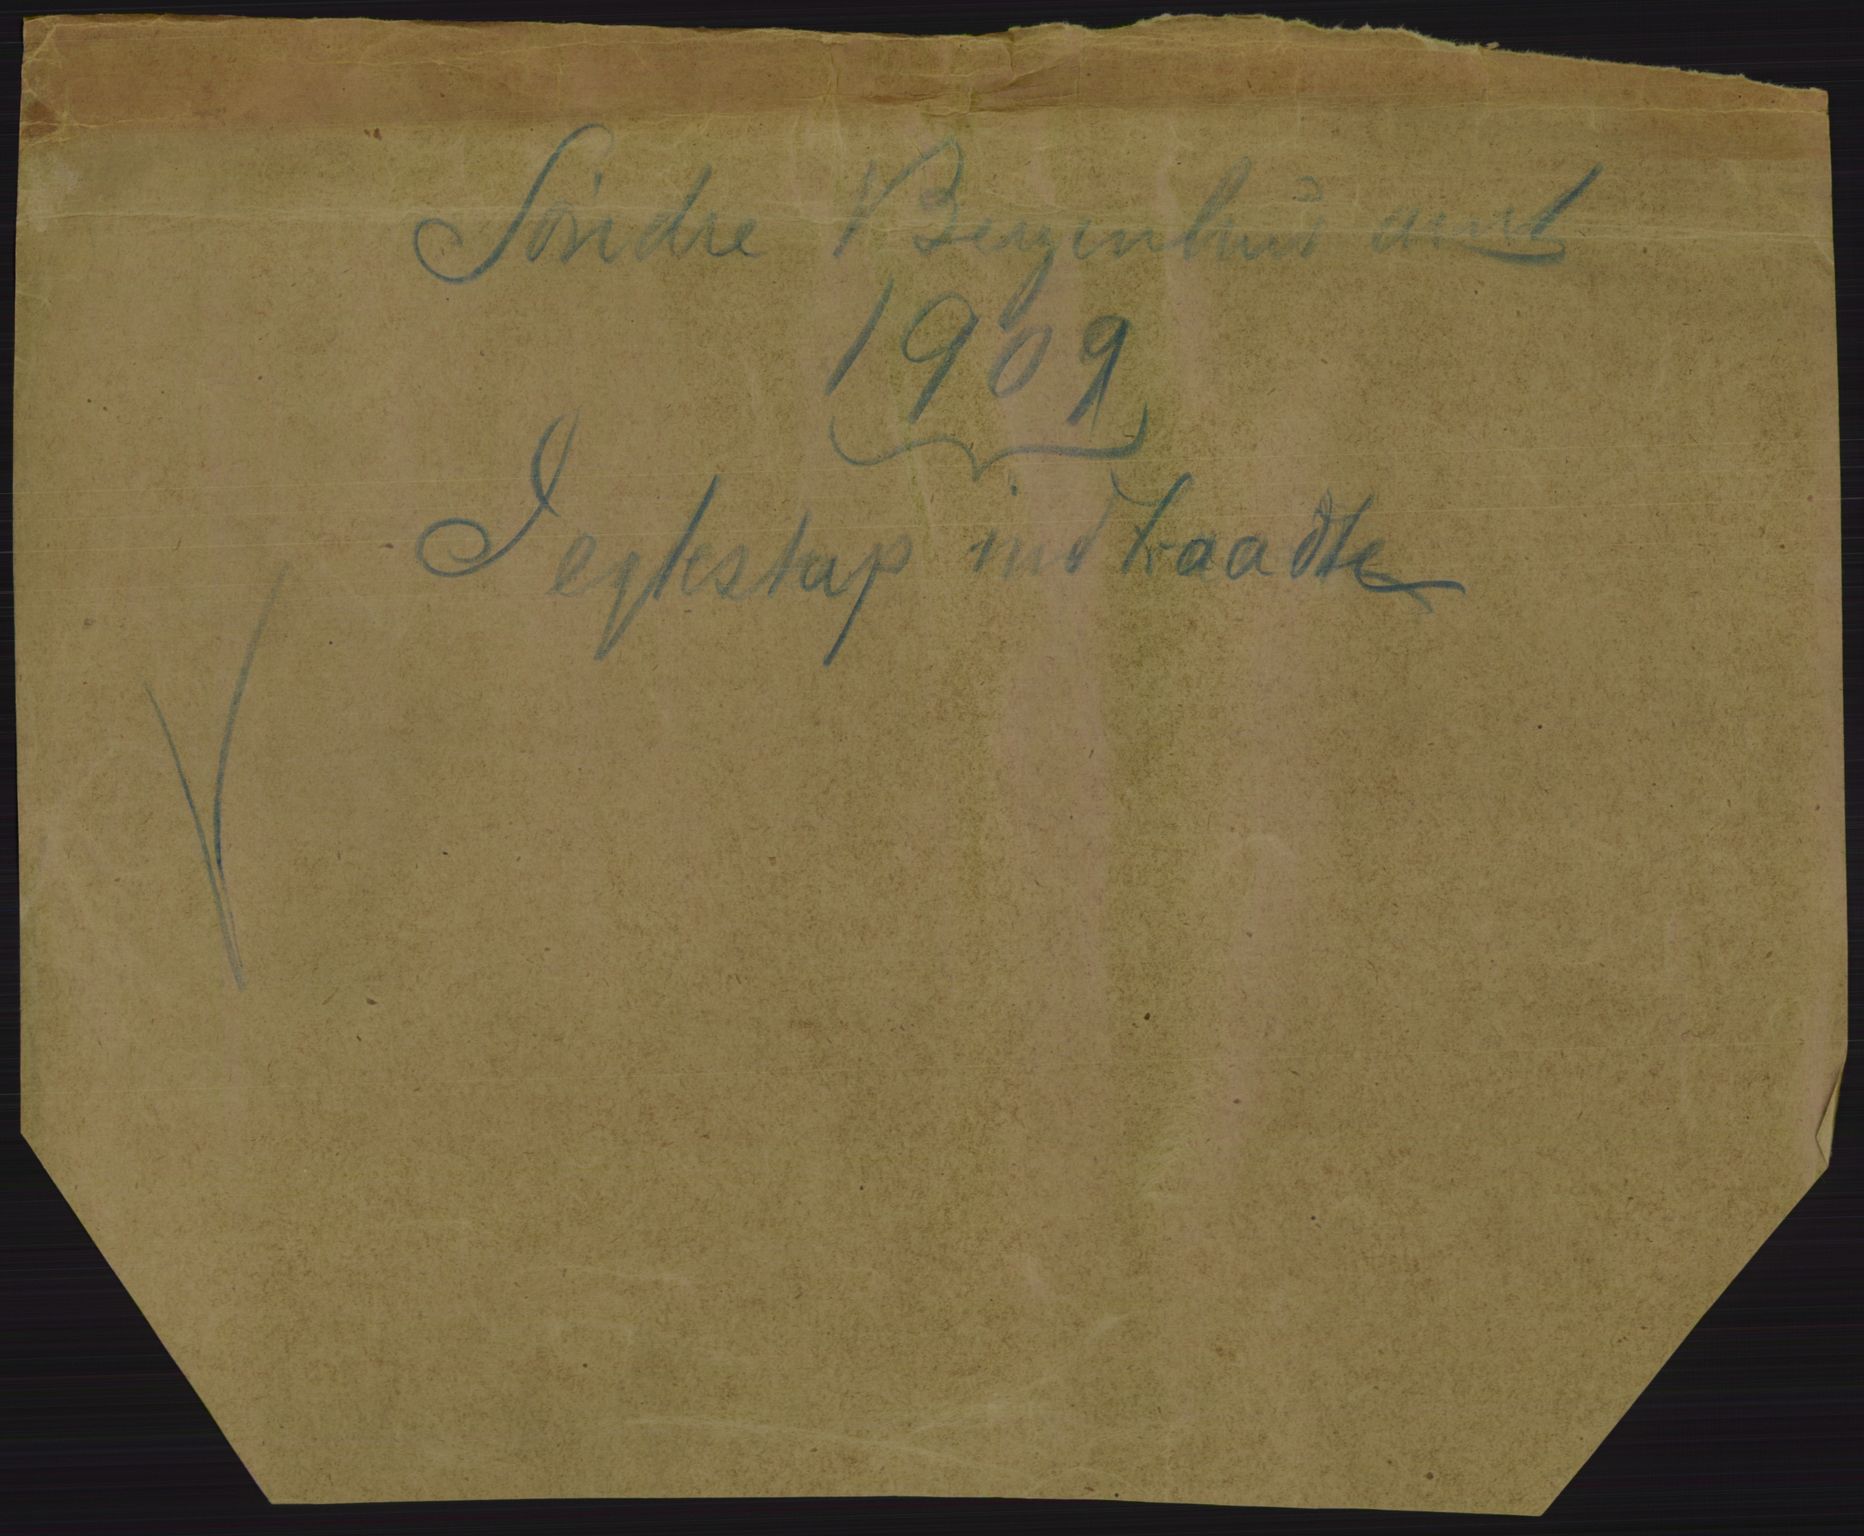 Söndre Bergenhus amt
1909
Tegltestap indkaadte